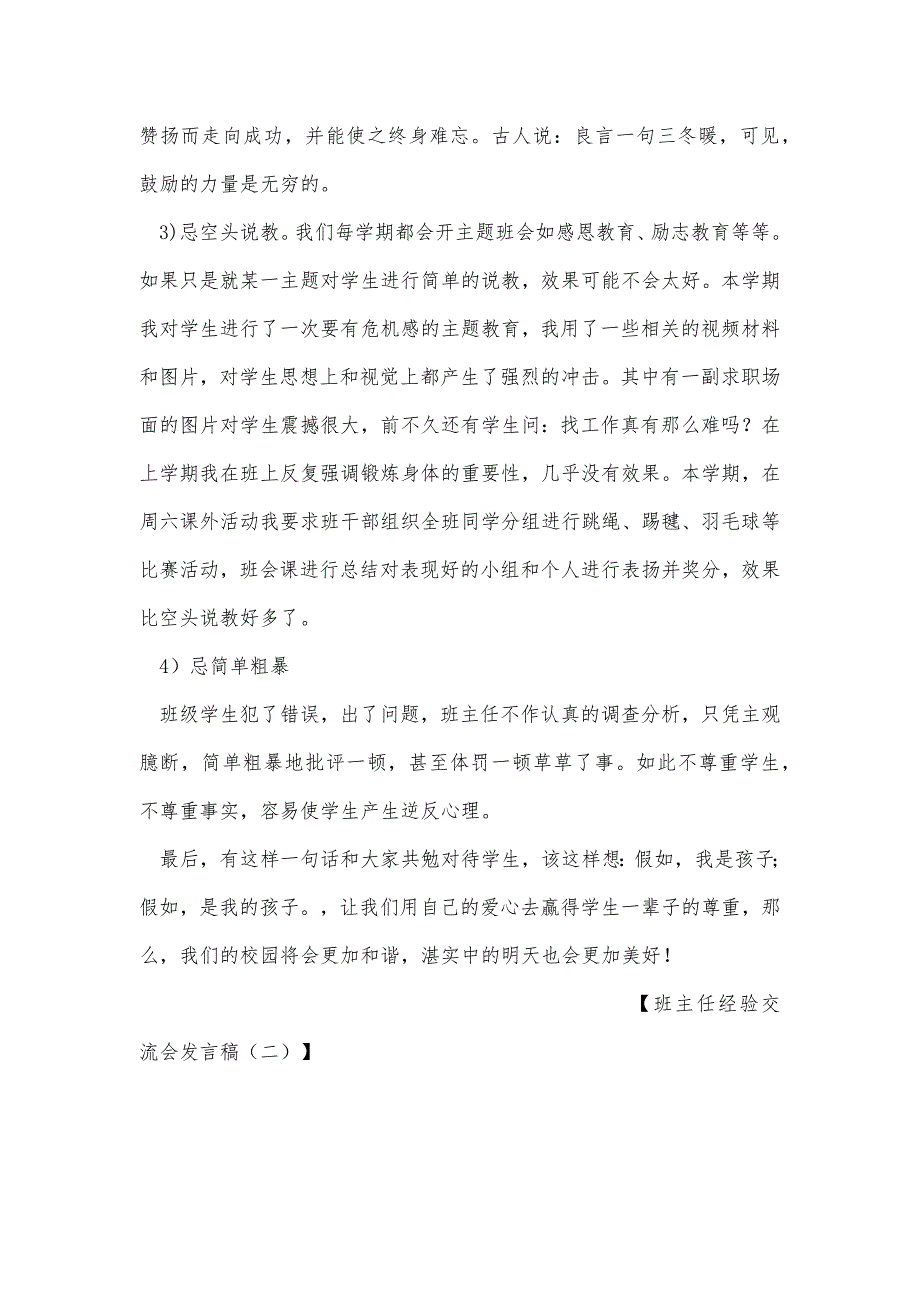 赞扬而走向成功，并能使之终身难忘。古人说：良言一句三冬暖，可见，
鼓励的力量是无穷的。
3)忌空头说教。我们每学期都会开主题班会如感恩教育、励志教育等等。
如果只是就某一主题对学生进行简单的说教，效果可能不会太好。本学期
我对学生进行了一次要有危机感的主题教育，我用了一些相关的视频材料
和图片，对学生思想上和视觉上都产生了强烈的冲击。其中有一副求职场
面的图片对学生震撼很大，前不久还有学生问：找工作真有那么难吗？在
上学期我在班上反复强调锻炼身体的重要性，几乎没有效果。本学期，在
周六课外活动我要求班干部组织全班同学分组进行跳绳、踢毽、羽毛球等
比赛活动，班会课进行总结对表现好的小组和个人进行表扬并奖分，效果
比空头说教好多了。
4）忌简单粗暴
班级学生犯了错误，出了问题，班主任不作认真的调查分析，只凭主观
臆断，简单粗暴地批评一顿，甚至体罚一顿草草了事。如此不尊重学生，
不尊重事实，容易使学生产生逆反心理。
最后，有这样一句话和大家共勉对待学生，该这样想：假如，我是孩子；
假如，是我的孩子。，让我们用自己的爱心去赢得学生一辈子的尊重，那
么，我们的校园将会更加和谐，湛实中的明天也会更加美好！
【班主任经验交
流会发言稿（二）】